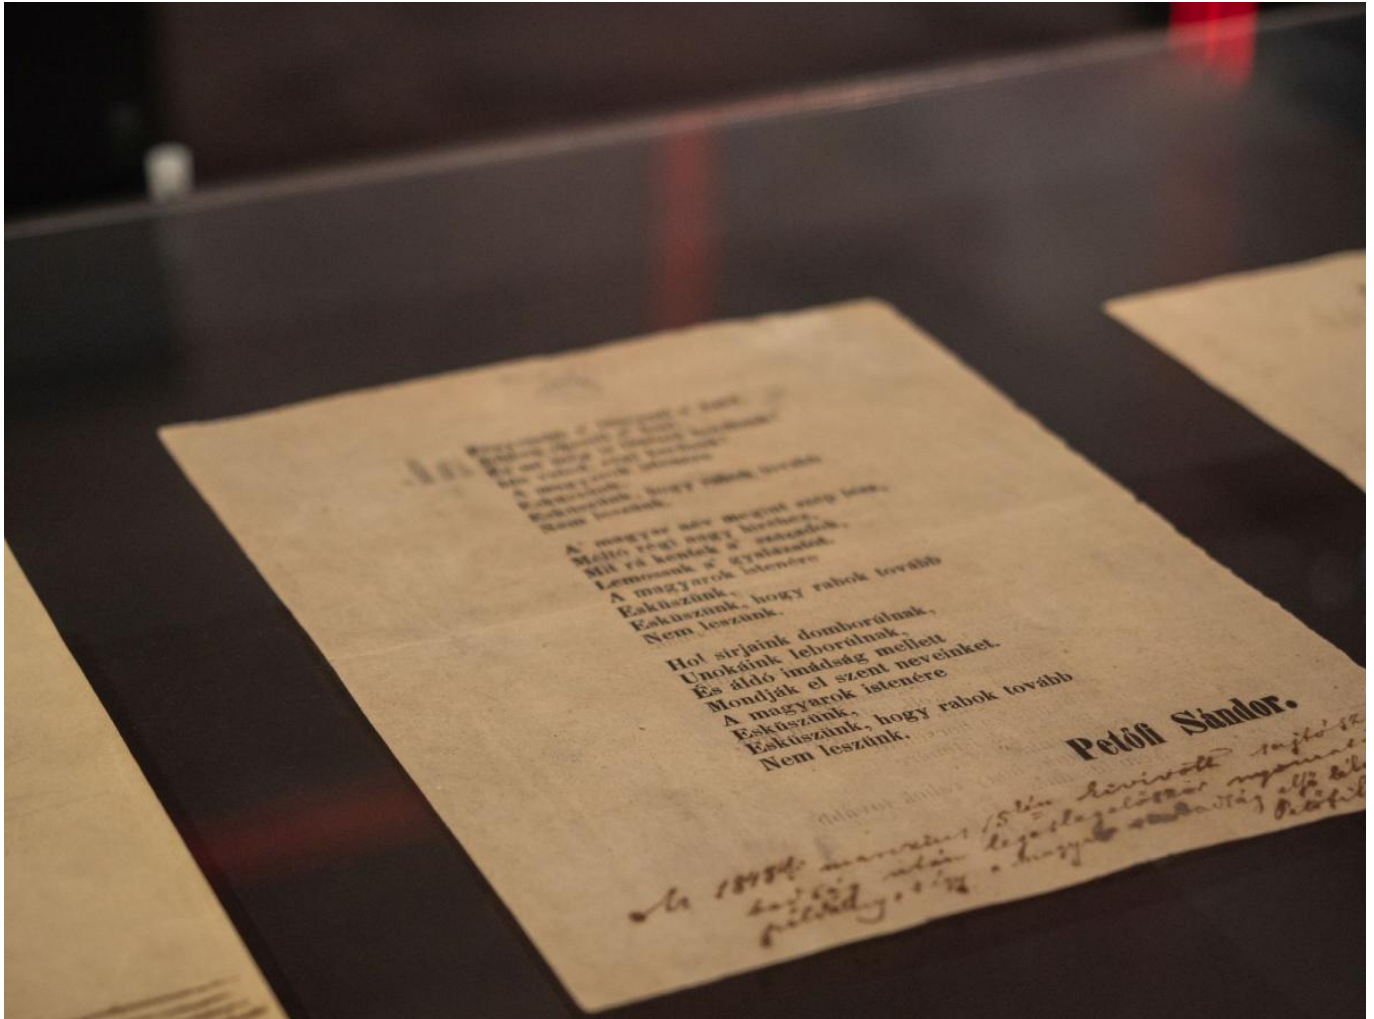 A magyarok istenére
Esküszünk,
Esküszünk, hogy rabok tovább
Nem leszünk.
A' magyar név megint szép lesz,
Méltó régi nagy hiréhez,
Mit rá kentek a' századok,
Lemossuk a' gyalázatot.
A magyarok istenére
Esküszünk,
Esküszünk, hogy rabok tovább
Nem leszünk.
Hol sirjaink domborúlnak,
Unokáink leborúlnak,
És áldó imádság mellett
Mondják el szent neveinket.
A magyarok istenére
Esküszünk,
Esküszünk, hogy rabok tovább
Nem leszünk.
Petőfi Sándor.
Az 1848diki marczius 15kén kivívott
után legeslegelőször
példány, s így a magyar szabadság első
Petőfi